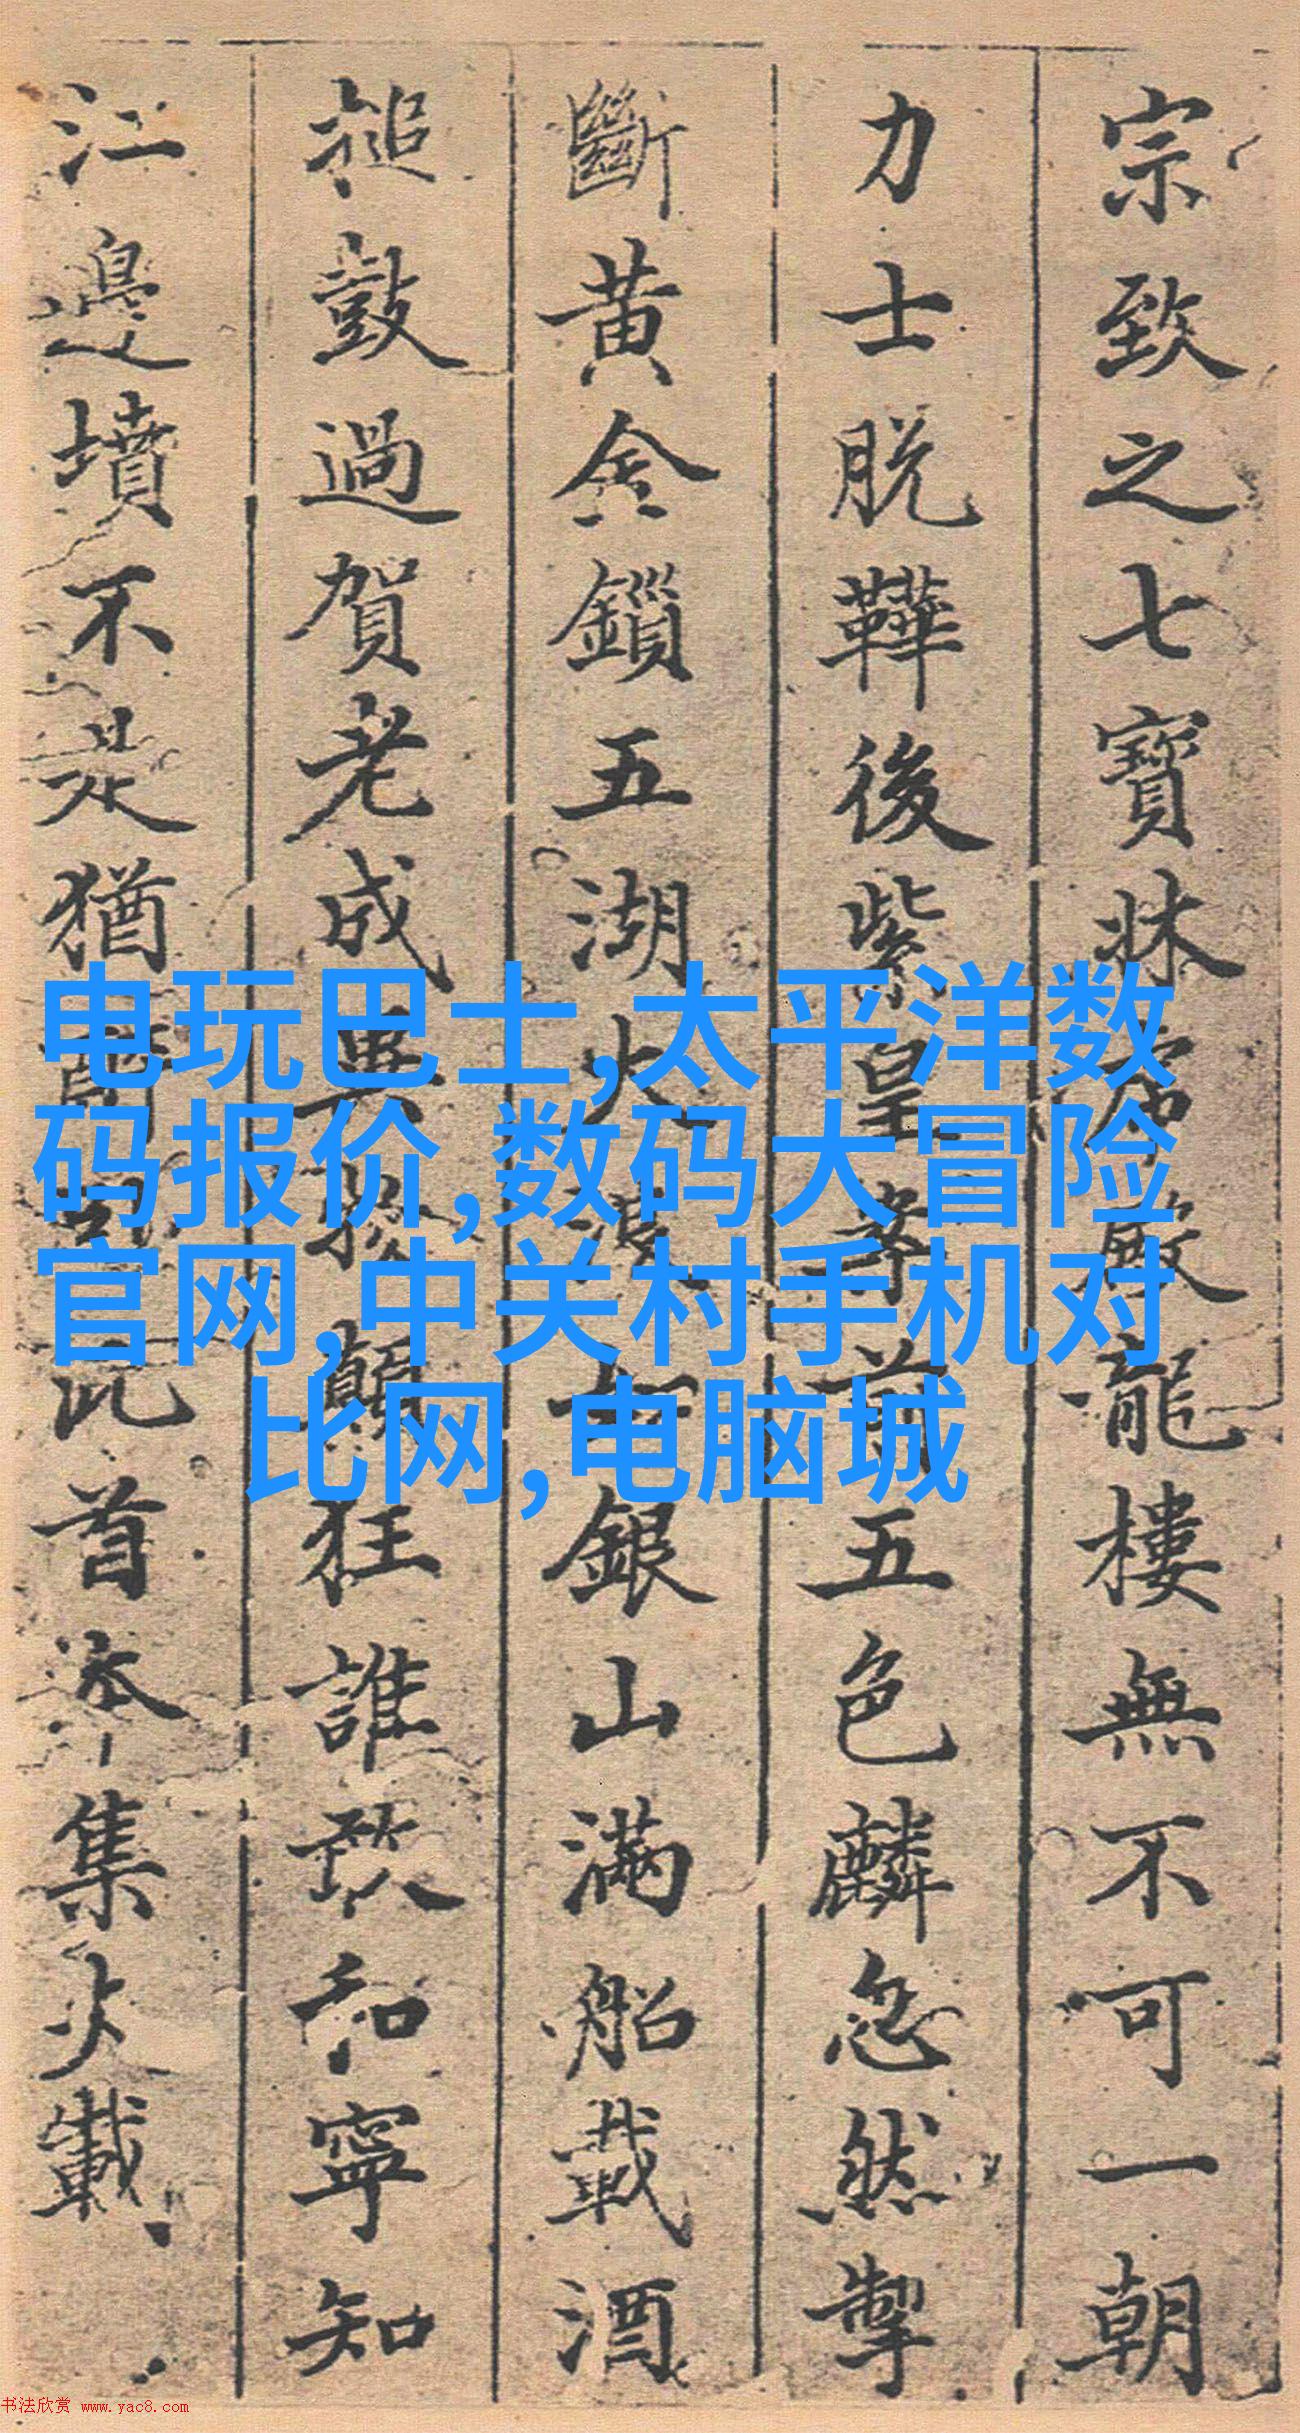 宗致之七寶牀虎殿龍樓無不可一朝
力士脫鞾後紫皇案前五色麟忽然掣
斷黃金鎖五湖大浪如銀山滿船載酒
搥鼓過賀老成異物顛狂誰敢和寧知
江邊墳不是猶醉臥此首本集載
电玩巴士,太平洋数
码报价,数码大冒险
官网,中关村手机对
比网,电脑城
书法欣赏 www.yac8.com